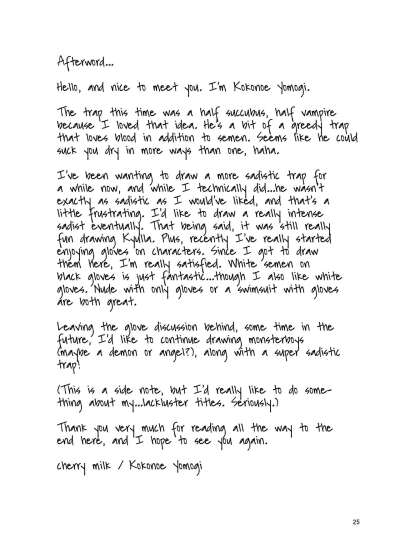 Afterword...
Hello, and nice to meet you. I'm Kokonoe Yomogi.
The trap this time was a half succubus, half vampire
because I loved that idea. He's a bit of a greedy trap
that loves blood in addition to semen. Seems like he could
suck you dry in more ways than one, haha.
I've been wanting to draw a more sadistic trap for
a while now, and while I technically did...he wasn't
exactly as sadistic as I would've liked, and that's a
little frustrating. I'd like to draw a really intense
sadist eventually. That being said, it was still really
fun drawing Kydla. Plus, recently I've really started
enjoying gloves on characters. Since I got to draw
them here, I'm really satisfied. White semen on
black gloves is just fantastic...though I also like white
gloves. Nude with only gloves or a swimsuit with gloves
are both great.
Leaving the glove discussion behind, some time in the
future, I'd like to continue drawing monsterboys
(maybe a demon or angel?), along with a super sadistic
trap!
(This is a side note, but I'd really like to do some-
thing about my...lackluster titles. Seriously.)
Thank you very much for reading all the way to the
end here, and I hope to see you again.
cherry milk / Kokonoe Yomogi
25